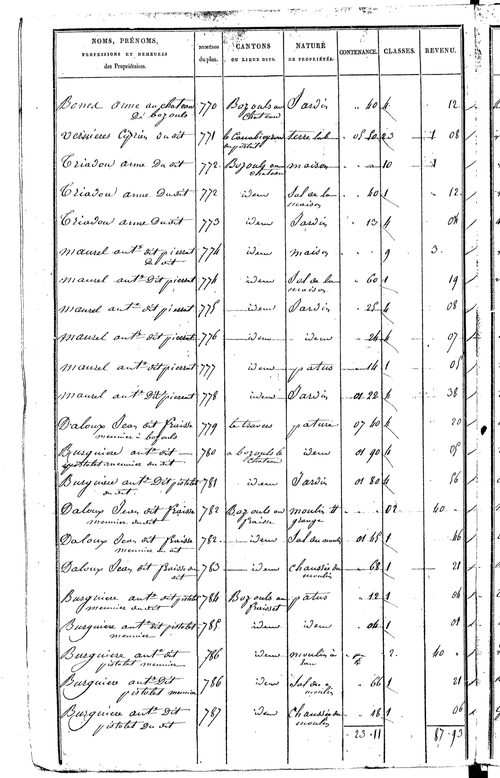 NOMS, PRÉNOMS, PROFESSIONS ET DEMEURES des Propriétaires. NUMÉROS du plan. CANTONS OU LIEUX DITS. NATURE DE PROPRIÉTÉS. CONTENANCE. CLASSES. REVENU.
Bonel anne du chateau de bozouls 770 Bozouls au chateau Jardin 40 4 12
Versieres Ciprien du dit 771 terre lab 05 50 23 1 08
Triadou anne du dit 772 Bozouls au chateau maison 10 1
Triadou anne du dit 772 idem Sol de la maison 40 1 12
Triadou anne du dit 773 idem Jardin 13 4 04
maurel ant.e dit pierrat du dit 774 idem maison 9 3
maurel ant.e dit pierrat 774 idem Sol de la maison 60 1 19
maurel ant.e dit pierrat 775 idem Jardin 25 4 08
maurel ant.e dit pierrat 776 idem idem 24 4 07
maurel ant.e dit pierrat 777 idem patus 14 1 05
maurel ant.e Dit pierrat 778 idem Jardin 01 22 4 38
Daloux Jean dit fraisse meunier à bozouls 779 le travers pature 07 60 4 20
Burguiere ant.e dit pistolet meunier du dit 780 a bozouls le chateau idem 01 90 4 05
Burguiere ant.e Dit pistolet du dit 781 idem Jardin 01 80 4 56
Daloux Jean dit fraisse meunier du dit 782 Bozouls au fraisse moulin et grange 02 40
Daloux Jean dit fraisse meunier du dit 782 idem Sol du moulin 01 45 1 46
Daloux Jean dit fraisse du dit 783 idem chaussée du moulin 68 1 21
Burguiere ant.e dit pistolet meunier du dit 784 Bozouls au fraisset patus 12 1 04
Burguiere ant.e dit pistolet meunier 785 idem idem 04 1 01
Burguiere ant.e dit pistolet meunier 786 idem moulin à eau 2 40
Burguiere ant.e Dit pistolet meunier 786 idem Sol du moulin 66 1 21
Burguiere ant.e dit pistolet du dit 787 idem chaussée du moulin 18 1 06
23 11 87 93